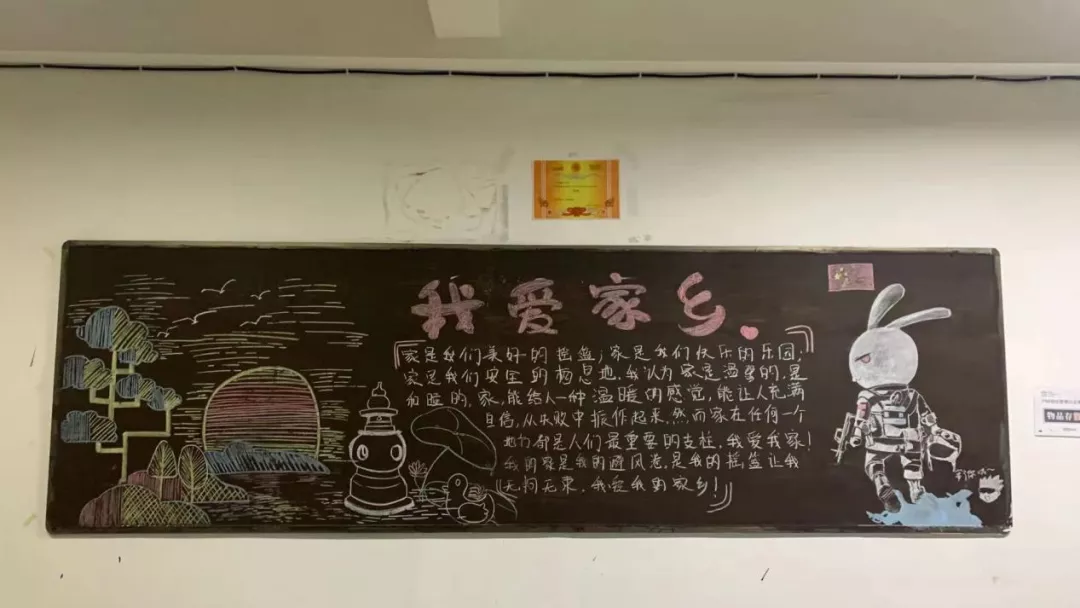 我爱家乡
家是我们美好的摇篮；家是我们快乐的乐园；
家是我们安全的栖息地。我认为家是温馨的，是
和暖的，家，能给人一种温暖的感觉，能让人充满
自信，从失败中振作起来，然而家在任何一个
地方都是人们最重要的支柱，我爱我家！
我的家是我的避风港，是我的摇篮让我
无拘无束，我爱我的家乡！